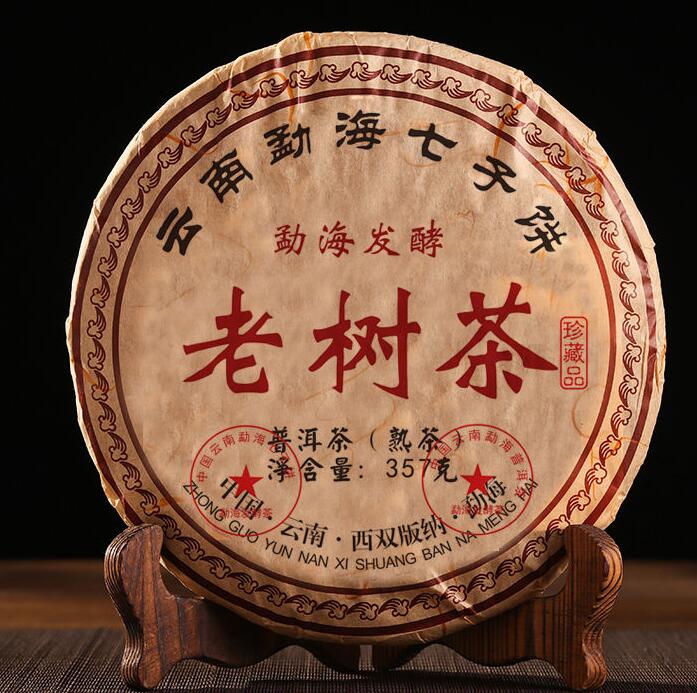 云南勐海七子饼
勐海发酵
老树茶
珍藏品
普洱茶（熟茶
净含量：357克
勐海发酵茶
勐海发酵茶
中国·云南·西双版纳·勐海
ZHONG GUO YUN NAN XI SHUANG BAN NA MENG HAI